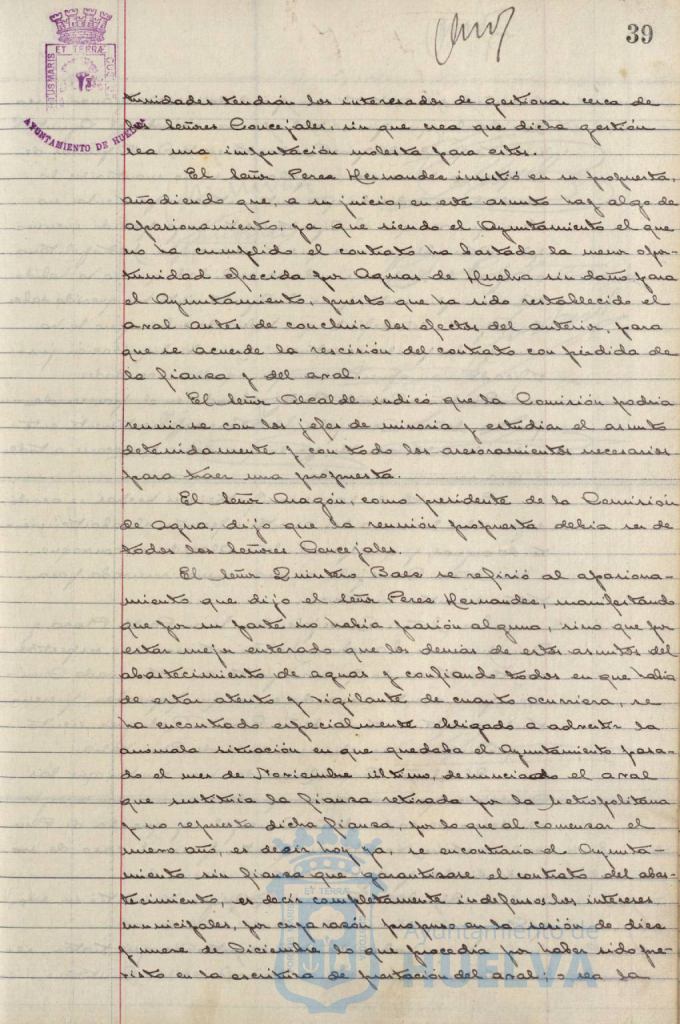 39
ET TERRÆ
PORTUS MARIS
CUSTODIA
AYUNTAMIENTO DE HUELVA
tunidades tendrán los interesados de gestionar cerca de
los Señores Concejales, sin que crea que dicha gestión
sea una imputación molesta para estos.
El Señor Perez Hernandez insistió en su propuesta,
añadiendo que, a su juicio, en este asunto hay algo de
apasionamiento, ya que siendo el Ayuntamiento el que
no ha cumplido el contrato ha bastado la menor opor-
tunidad ofrecida por Aguas de Huelva sin daño para
el Ayuntamiento, puesto que ha sido restablecido el
aval antes de concluir los efectos del anterior, para
que se acuerde la rescisión del contrato con pérdida de
la fianza y del aval.
El Señor Alcalde indicó que la Comisión podria
reunirse con los jefes de minoria y estudiar el asunto
detenidamente y con todo los asesoramientos necesarios
para traer una propuesta.
El Señor Aragón, como presidente de la Comisión
de Agua, dijo que la reunión propuesta debia ser de
todos los Señores Concejales.
El Señor Quintero Baez se refirió al apasiona-
miento que dijo el Señor Perez Hernandez, manifestando
que por su parte no habia pasión alguna, sino que por
estar mejor enterado que los demás de estos asuntos del
abastecimiento de aguas y confiando todos en que habia
de estar atento y vigilante de cuanto ocurriera, se
ha encontrado especialmente obligado a advertir la
anómala situación en que quedaba el Ayuntamiento pasa-
do el mes de Noviembre último, denunciado el aval
que sustituia la fianza retirada por la Metropolitana
y no repuesta dicha fianza, por lo que al comenzar el
nuevo año, es decir hoy ya, se encontraria el Ayunta-
miento sin fianza que garantizase el contrato del abas-
tecimiento, es decir completamente indefensos los intereses
municipales, por cuya razón propuso en la sesión de diez
y nueve de Diciembre lo que procedia por haber sido pre-
visto en la escritura de prestación del aval; o sea la
Ayuntamiento de
HUELVA